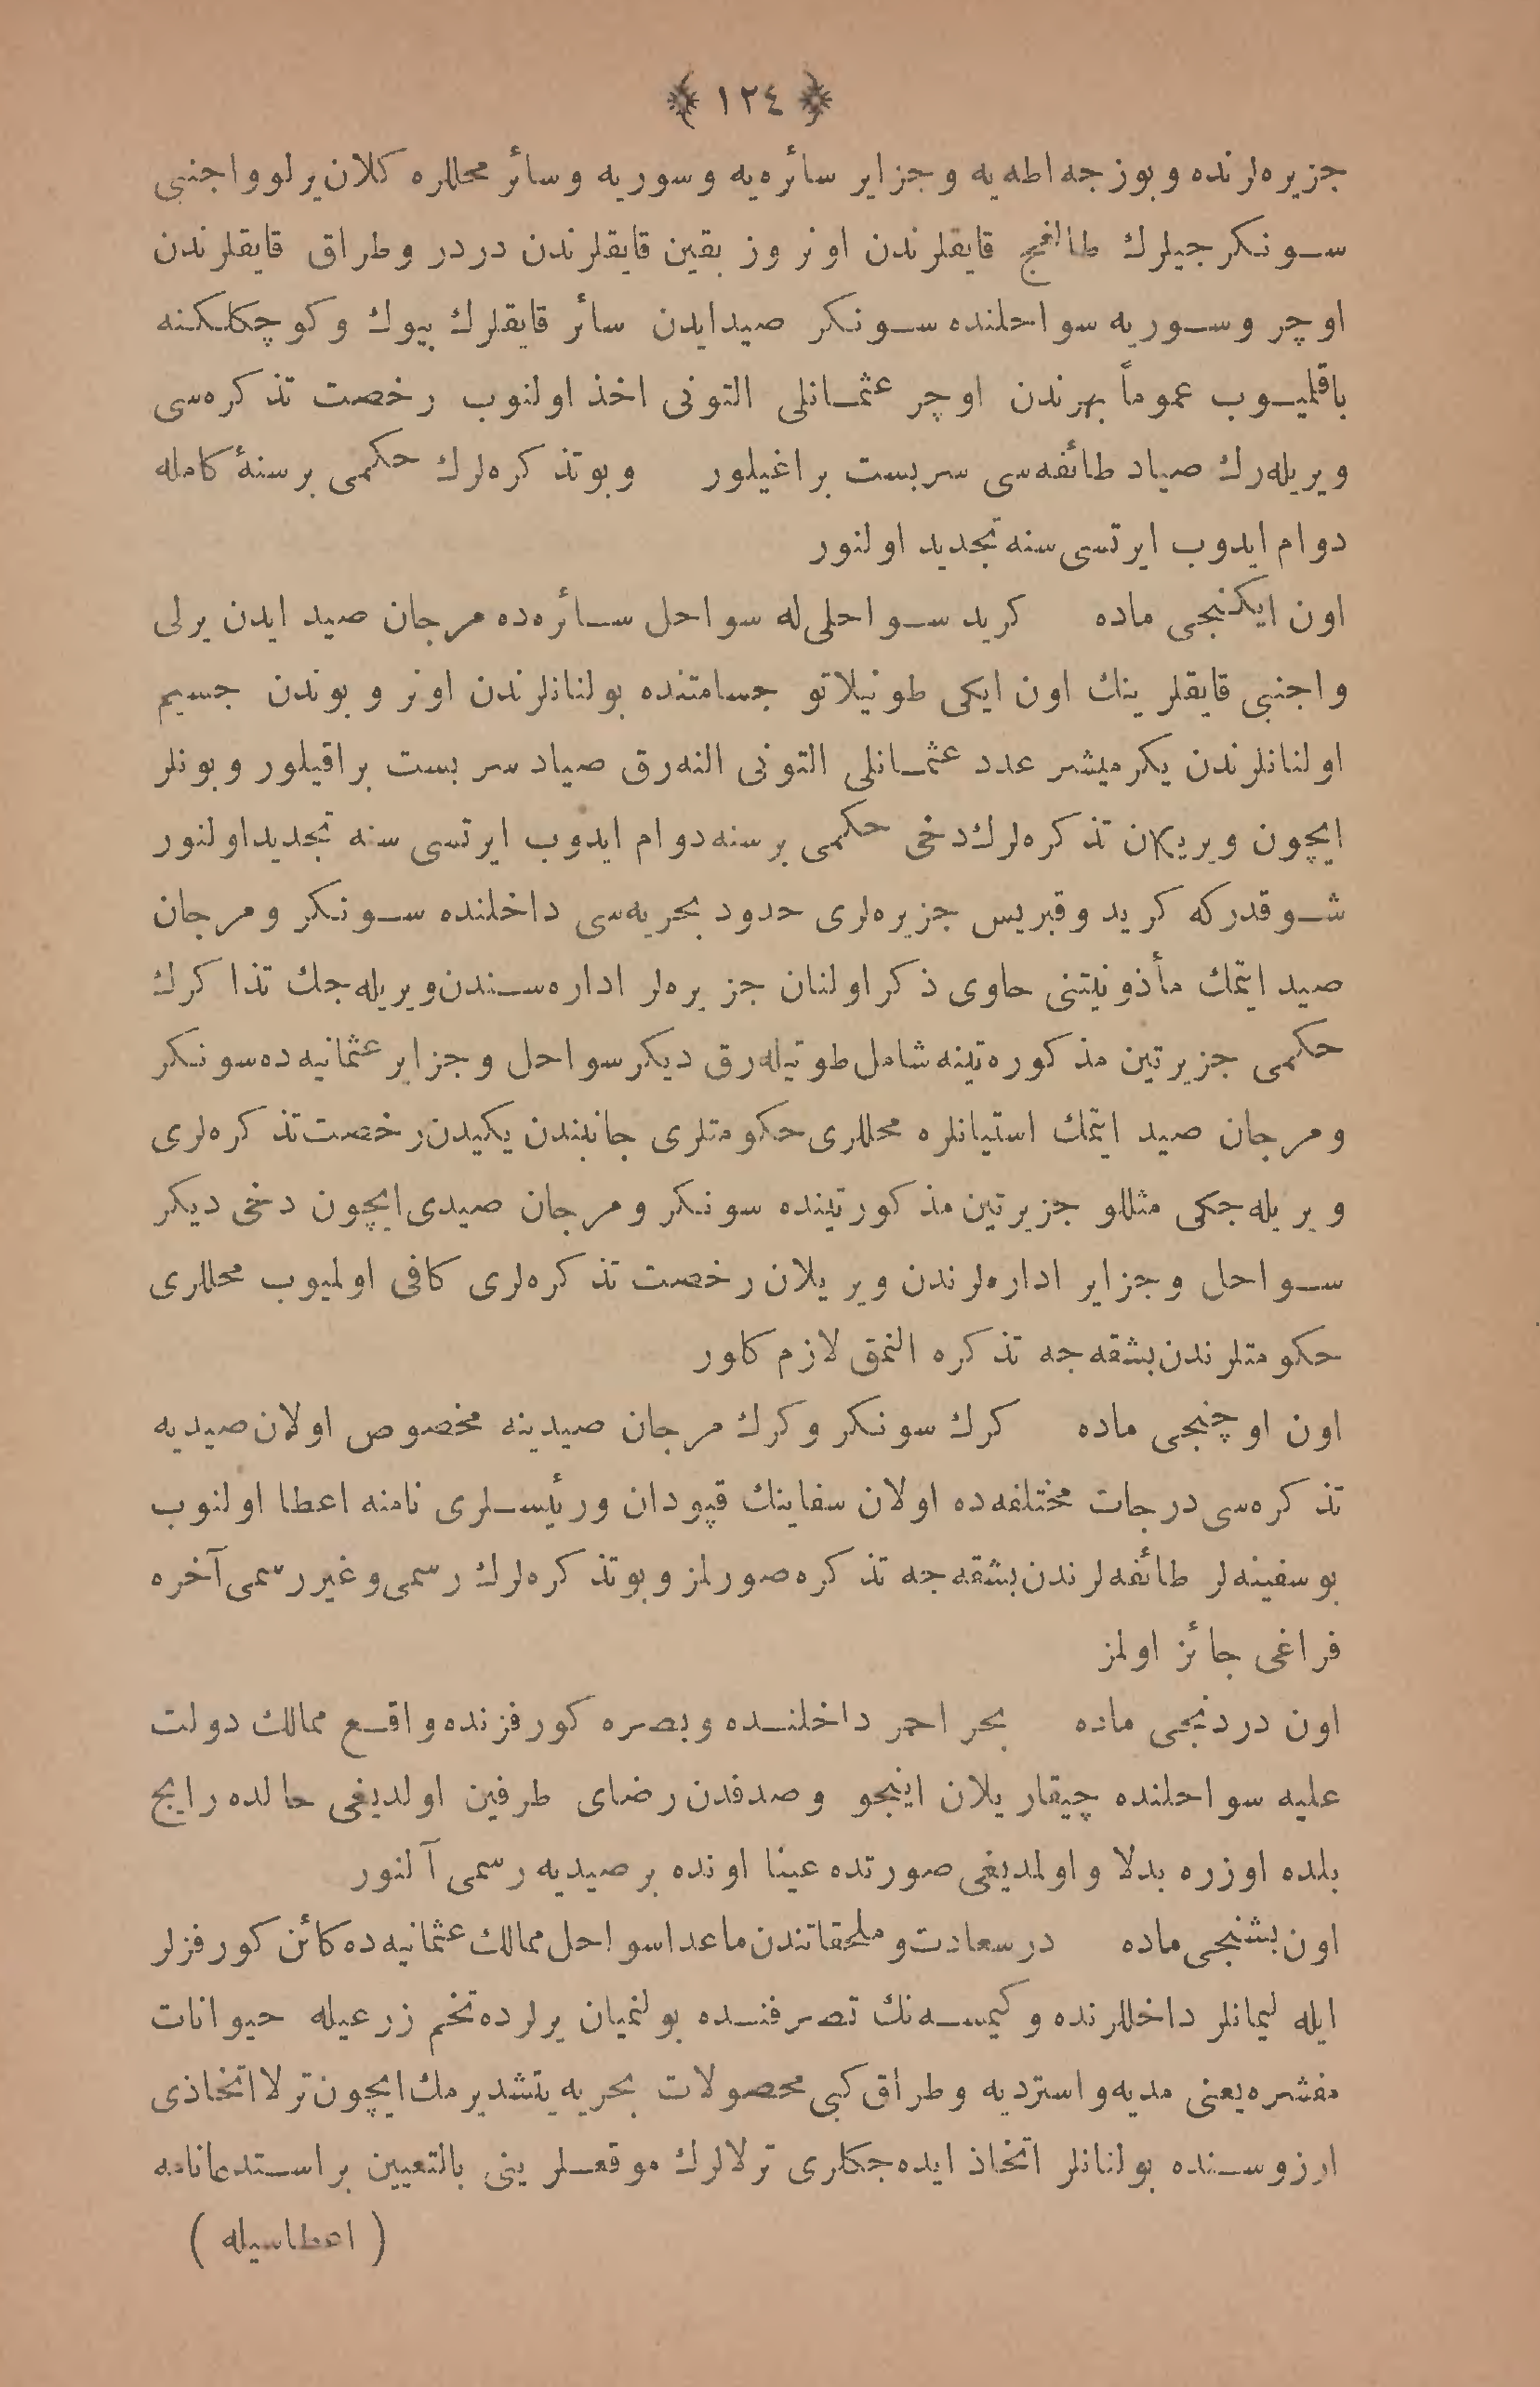 ﴿ ١٢٤ ﴾
جزیره‌لرنده و بوزجه اطه‌یه و جزایر سائره‌یه و سوریه و سائر محللره کلان یرلو و اجنبی
سونکرجیلرك طالغیج قایقلرندن اونر وز بقین قایقلرندن دردر و طراق قایقلرندن
اوچر و سوریه سواحلنده سونکر صیدایدن سائر قایقلرك بیوك و کوچکلکنه
باقلمیوب عموماً بهرندن اوچر عثمانلی التونی اخذ اولنوب رخصت تذکره‌سی
ویریله‌رك صیاد طائفه‌سی سربست براغیلور و بوتذکره‌لرك حکمی برسنۀ کامله
دوام ایدوب ایرتسی سنه تجدید اولنور
اون ایکنجی ماده کرید سواحلی‌له سواحل سائره‌ده مرجان صید ایدن یرلی
و اجنبی قایقلرینك اون ایکی طونیلاتو جسامتنده بولنانلرندن اونر و بوندن جسیم
اولنانلرندن یکرمیشر عدد عثمانلی التونی النه‌رق صیاد سربست براقیلور و بونلر
ایچون ویریلان تذکره‌لرك دخی حکمی برسنه دوام ایدوب ایرتسی سنه تجدید اولنور
شوقدرکه کرید و قبریس جزیره‌لری حدود بحریه‌سی داخلنده سونکر و مرجان
صید ایتمك مأذونیتنی حاوی ذکر اولنان جزیره‌لر اداره‌سندن ویریله‌جك تذاکرك
حکمی جزیرتین مذکوره‌تینه شامل طوتیله‌رق دیکر سواحل و جزایر عثمانیه‌ده سونکر
و مرجان صید ایتمك استیانلره محللری حکومتلری جانبندن یکیدن رخصت تذکره‌لری
ویریله‌جکی مثللو جزیرتین مذکورتینده سونکر و مرجان صیدی ایچون دخی دیکر
سواحل و جزایر اداره‌لرندن ویریلان رخصت تذکره‌لری کافی اولمیوب محللری
حکومتلرندن بشقه‌جه تذکره النمق لازم کلور
اون اوچنجی ماده کرك سونکر و کرك مرجان صیدینه مخصوص اولان صیدیه
تذکره‌سی درجات مختلفه‌ده اولان سفاینك قپودان و رئیسلری نامنه اعطا اولنوب
بوسفینه‌لر طائفه‌لرندن بشقه‌جه تذکره صورلمز و بوتذکره‌لرك رسمی و غیررسمی آخره
فراغی جائز اولمز
اون دردنجی ماده بحر احمر داخلنده و بصره کورفزنده واقع ممالك دولت
علیه سواحلنده چیقاریلان اینجو و صدفدن رضای طرفین اولدیغی حالده رایج
بلده اوزره بدلا و اولمدیغی صورتده عینا اونده بر صیدیه رسمی آلنور
اون بشنجی ماده درسعادت و ملحقاتندن ماعدا سواحل ممالك عثمانیه‌ده کائن کورفزلر
ایله لیمانلر داخللرنده و کیمسه‌نك تصرفنده بولنمیان یرلرده تخم زرعیله حیوانات
مفشره یعنی مدیه و استردیه و طراق کبی محصولات بحریه یتشدیرمك ایچون ترلا اتخاذی
ارزوسنده بولنانلر اتخاذ ایده‌جکلری ترلالرك موقعلرینی بالتعیین براستدعانامه
( اعطاسیله )